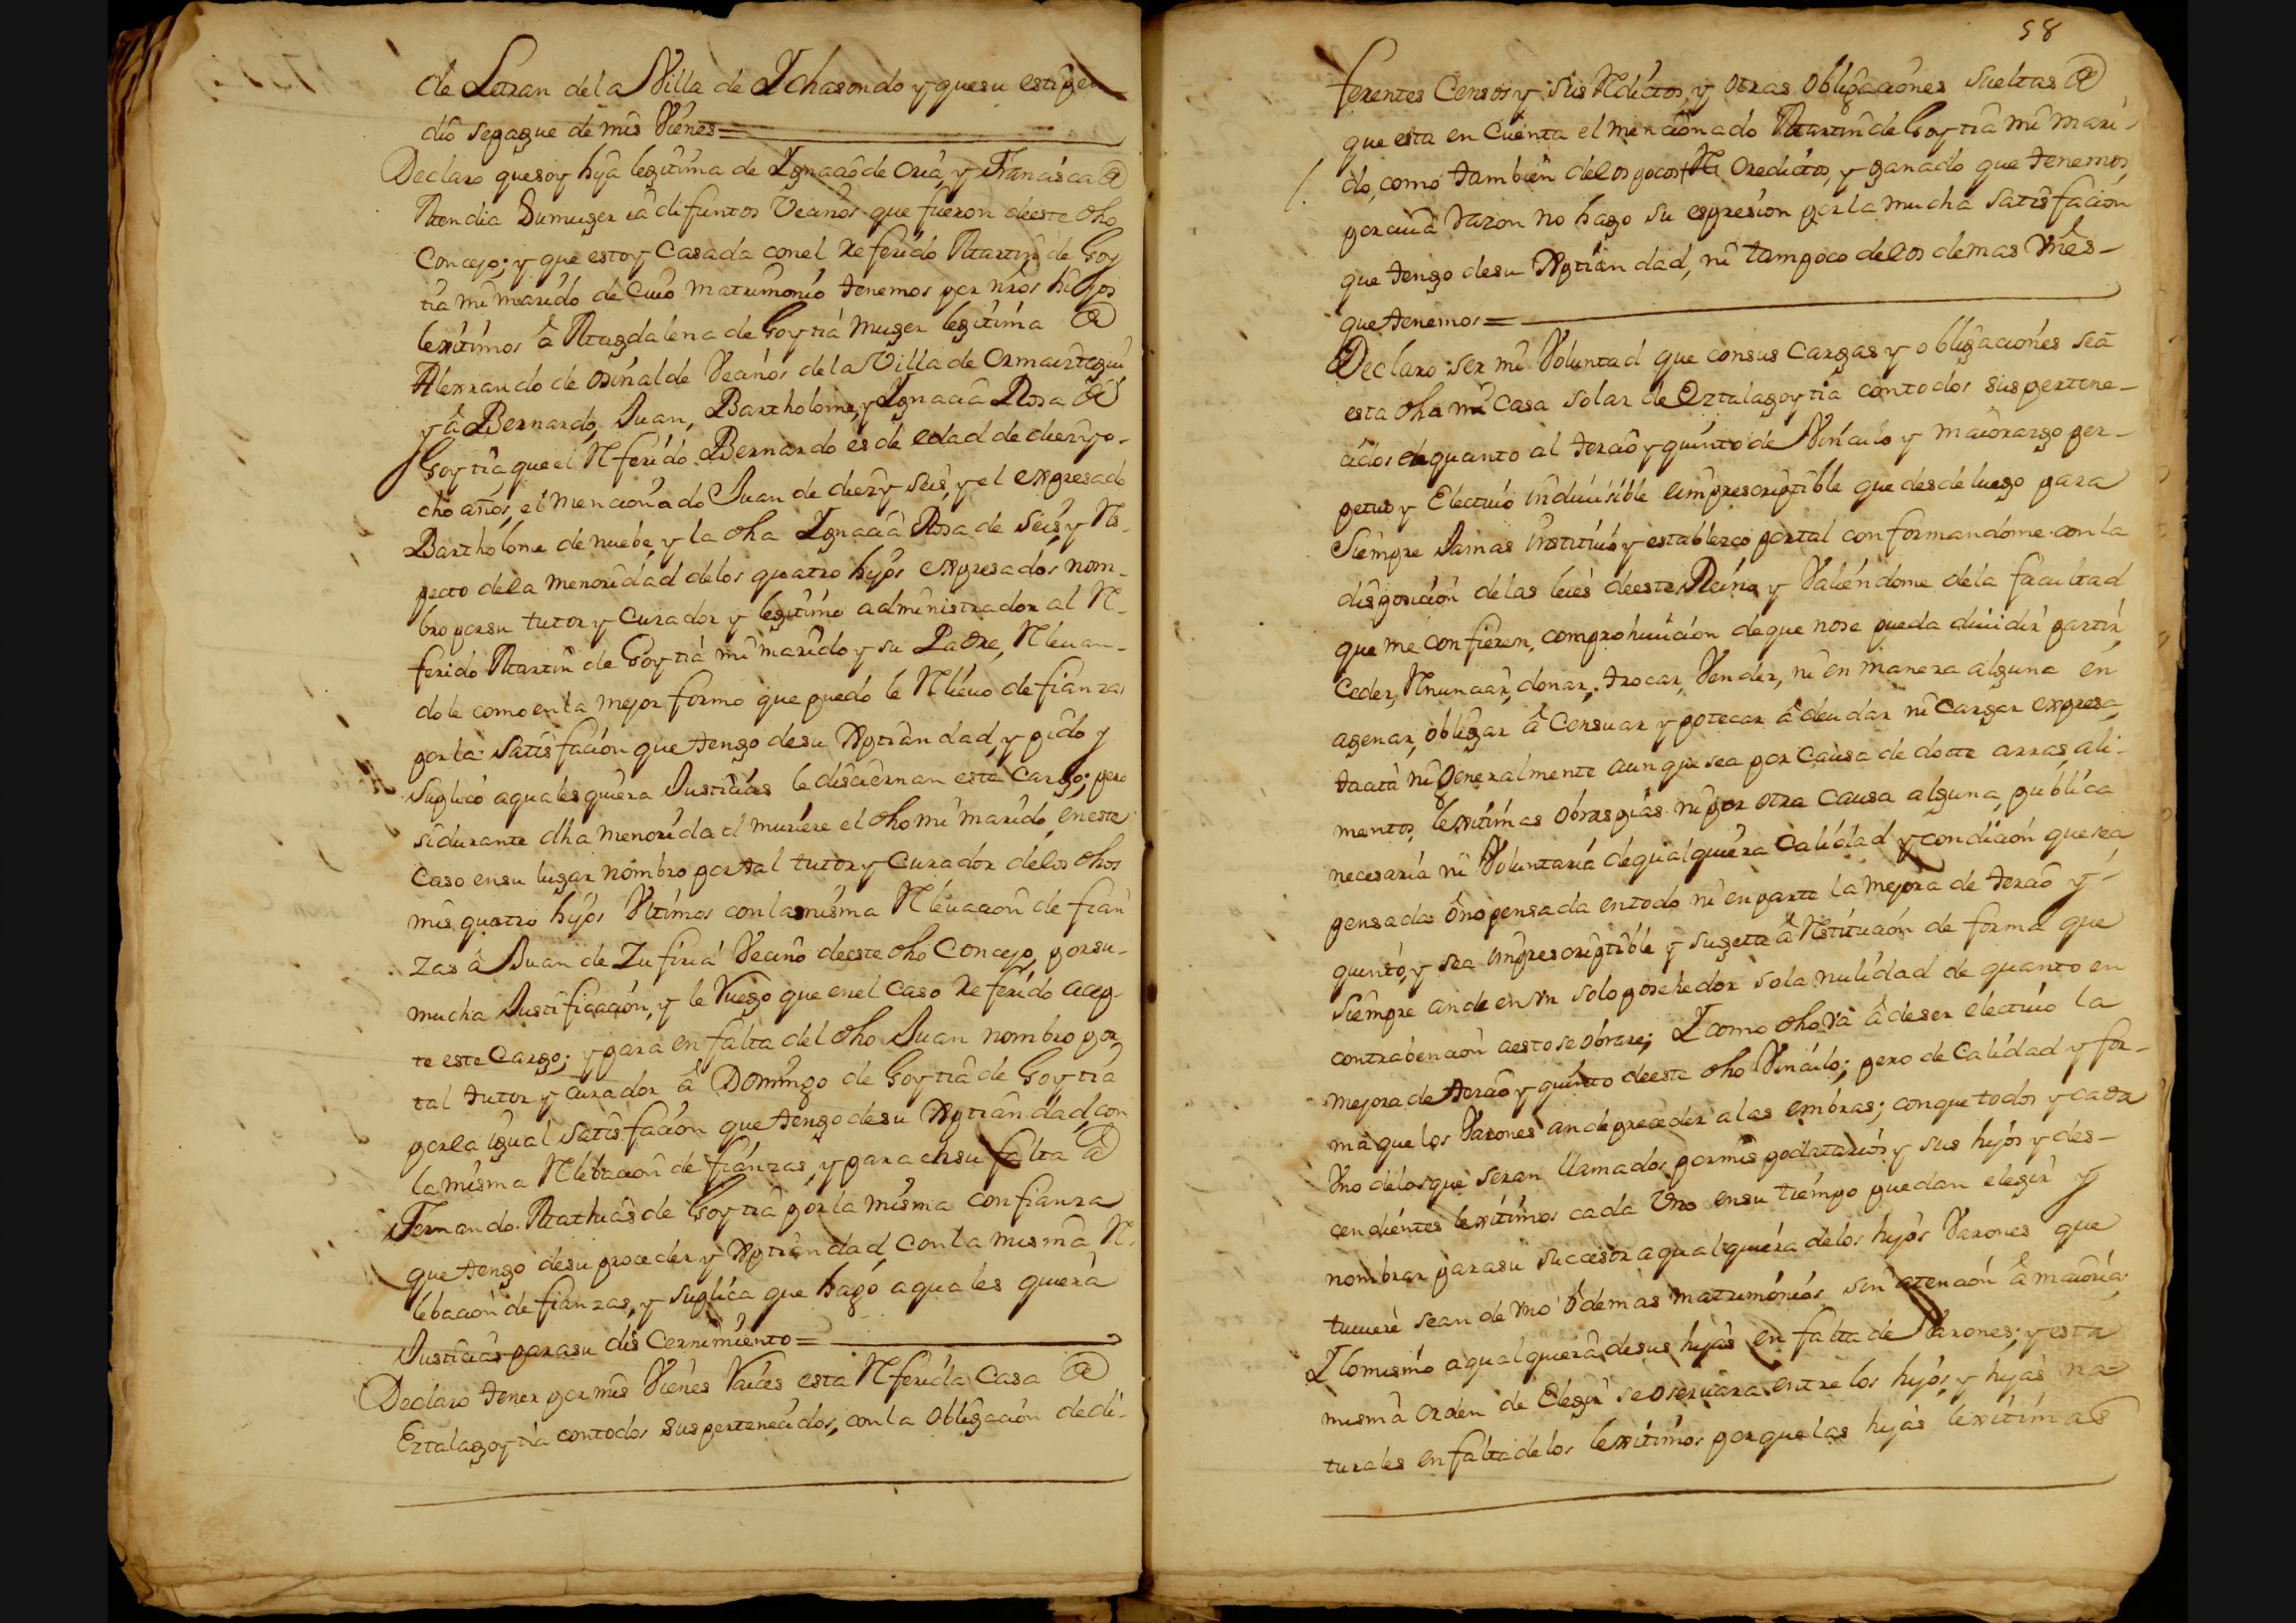 de Letran de la Villa de Ychasondo y que su estipen
dio se pague de mis Vienes=
Declaro que soy hija legitima de Ygnacio de Oria, y Francisca @
Mendia Su muger iâ difuntos Vecinos que fueron de este dho
Concejo; y que estoy Casada con el Referido Martin de Goy
tia mi marido de Cuio matrimonio tenemos por nros hijos
lexitimos â Magdalena de Goytia Muger legitima @
Alexando de Osinalde Vecinos de la Villa de Ormaiztegui
y â Bernardo, Juan, Bartholome, y Ygnacia Rosa @
Goytia, que el Referido Bernardo es de edad de diez y o-
cho años, el mencionado Juan de diez y seis, y el expresado
Bartholome de nuebe, y la dha Ygnacia Rosa de Seis y Res-
pecto de la menoridad de los quatro hijos expresados nom-
bro por su tutor y Curador y legitimo administrador al Re-
ferido Martin de Goytia mi marido y su Padre, Releuan-
dole como en la mejor formo que puedo le Relieuo de fianzas
por la Satisfacion que tengo de su Xptiandad, y pido y
Suplico a qualesquiera Justicias le disciernan este Cargo; pero
si durante dha menorida el muriere el dho mi marido, en este
Caso en su lugar nombro por tal tutor y Curador de los dhos
mis quatro hijos Vltimos con la misma Releuacion de fian
zas â Juan de Zufiria Vecino de este dho Concejo, por su-
mucha Justificacion, y le Ruego que en el Caso Referido acep-
te este Cargo; y para en falta del dho Juan nombro por
tal tutor y Curador â Domingo de Goytia de Goytia
por la igual Satisfacion que tengo de su Xptiandad, con
la misma Relebacion de fianzas, y para en su falta â
Fernando Mathias de Goytia por la misma confianza
que tengo de su proceder y Xptiandad, con la misma Re-
lebacion de fianzas, y suplica que hago a qualesquiera
Justicias para su discernimiento=
Declaro tener por mis Vienes Raices esta Referida Casa @
Eztalagoytia con todos sus pertenecidos, con la obligacion de di-
58
ferentes Censos y sus Redictos, y otras obligaciones Sueltas @
que esta en Cuenta el mencionado Martin de Goytia mi mari-
do, como tambien de los pocos Credictos, y ganado que tenemos,
por cuia razon no hago su espresion por la mucha Satisfacion
que tengo de su Xptiandad, ni tampoco de los demas Vnês-
que tenemos=
Declaro ser mi Voluntad que con sus Cargas y obligaciones sea
esta dha mi Casa Solar de Eztalagoytia con todos sus pertene-
cidos en quanto al tercio y quinto de Vinculo y maiorazgo per-
petuo y Electiuo indiuisible e imprescriptible que desde luego para
Siempre Jamas instituio y establezco por tal conformandome con la
disposicion de las leies de este Reino, y Valiendome de la facultad
que me confieren, comprohiuicion de que no se pueda diuidir, partir,
Ceder, Renunciar, donar, trocar, Vender, ni en manera alguna en
agenar, obligar â Censuar y potecar â deudar ni Cargar expresa
tacita ni Generalmente aunque sea por Causa de dotte arras, ali-
mentos, lexitimas obras pias ni por otra Causa alguna, publica
necesaria ni Voluntaria de qualquiera Calidad y condicion que sea,
pensada ô no pensada en todo ni en parte la mejora de tercio y
quinto, y sea imprescriptible y sugeta â Restitucion de forma que
Siempre ande en vn solo posehedor so la nulidad de quanto en
contrabencion a esto se obrare; Y como dho vâ â de ser electiuo la
mejora de tercio y quinto de este dho Vinculo; pero de Calidad y for-
ma que los Varones an de preceder a las embras; con que todos y cada
Vno de los que seran llamados por mis podatarios y sus hijos y des-
cendientes lexitimos cada Vno en su tiempo puedan elegir y
nombrar para su Succesor a qualquiera de los hijos Varones que
tuuiere sean de vno ô demas matrimonios sin atencion â maioria
Y lo mismo a qualquiera de sus hijas en falta de Varones; y esta
misma orden de Elegir se oseruara entre los hijos y hijas na-
turales en falta de los lexitimos porque las hijas lexitimas